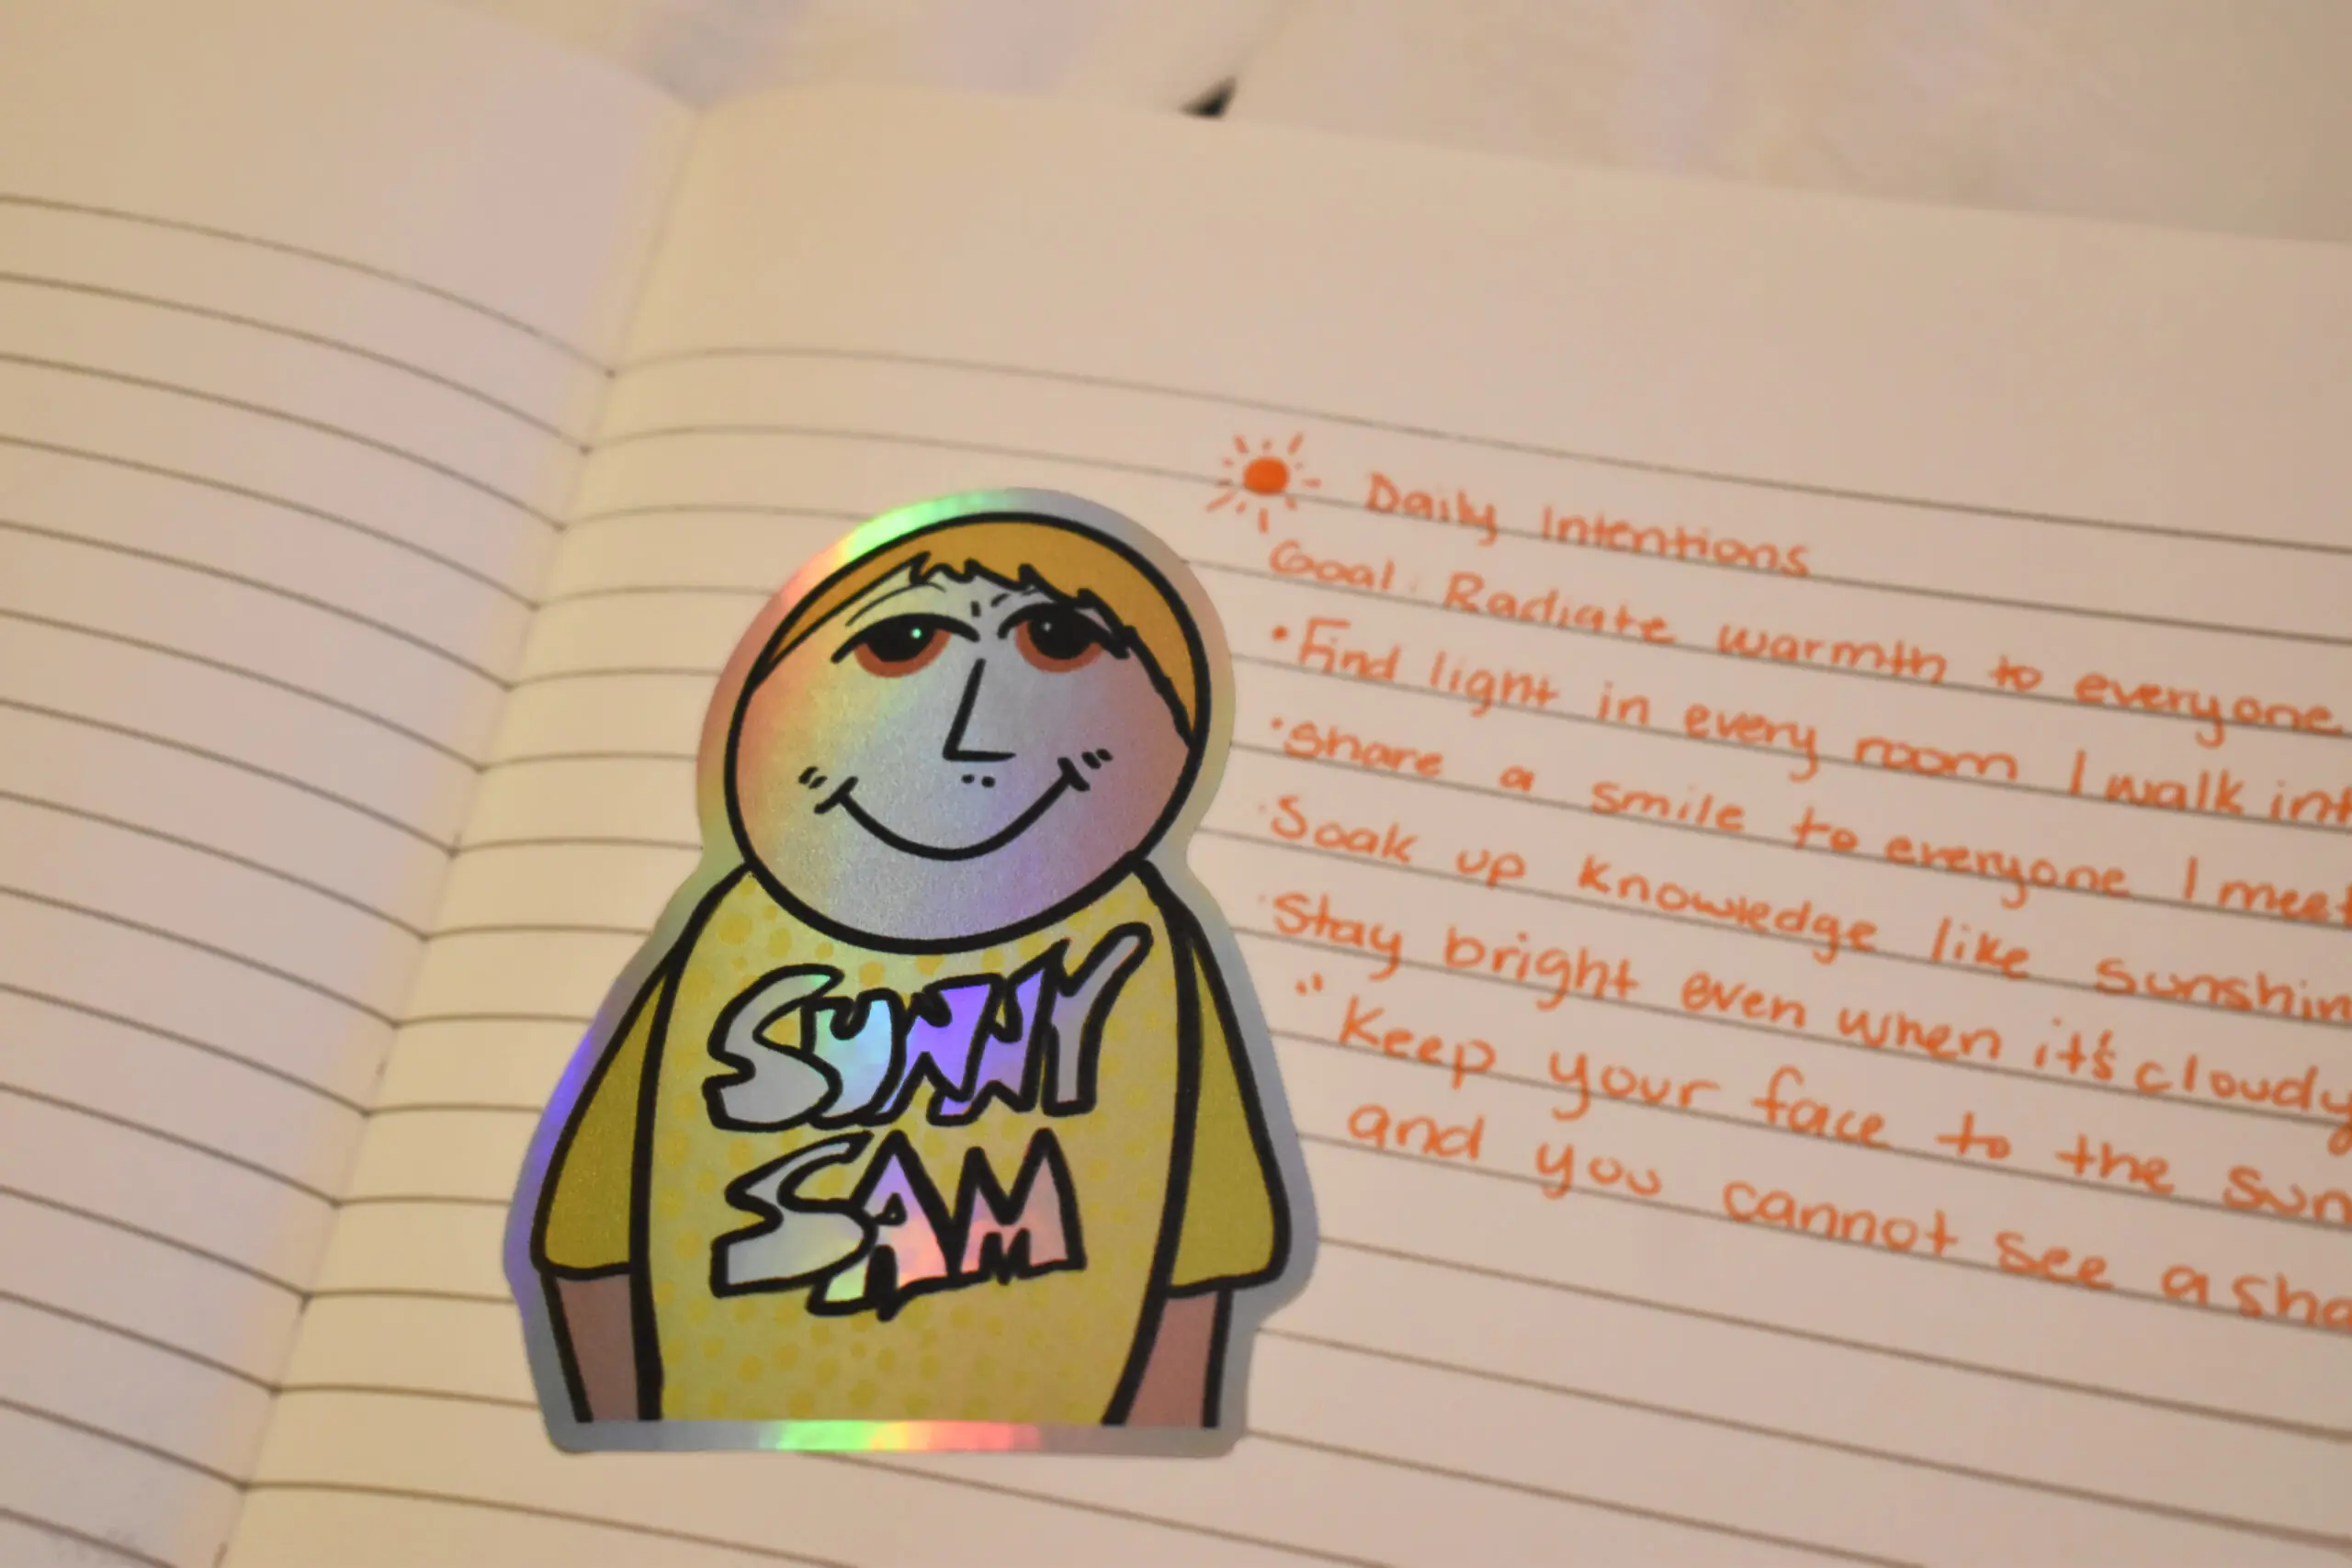 SUNNY
SAM
Daily Intentions
Goal: Radiate warmth to everyone
• Find light in every room I walk int
• Share a smile to everyone I meet
• Soak up knowledge like sunshin
• Stay bright even when it's cloudy
" Keep your face to the sun
and you cannot see a sha